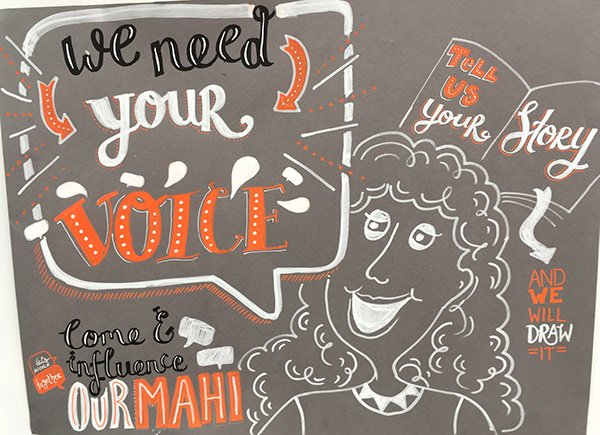 we need
your
VOICE
TELL
US
your
Story
AND
WE
WILL
DRAW
=IT=
Come &
influence
OUR MAHI
let's
WORK
together